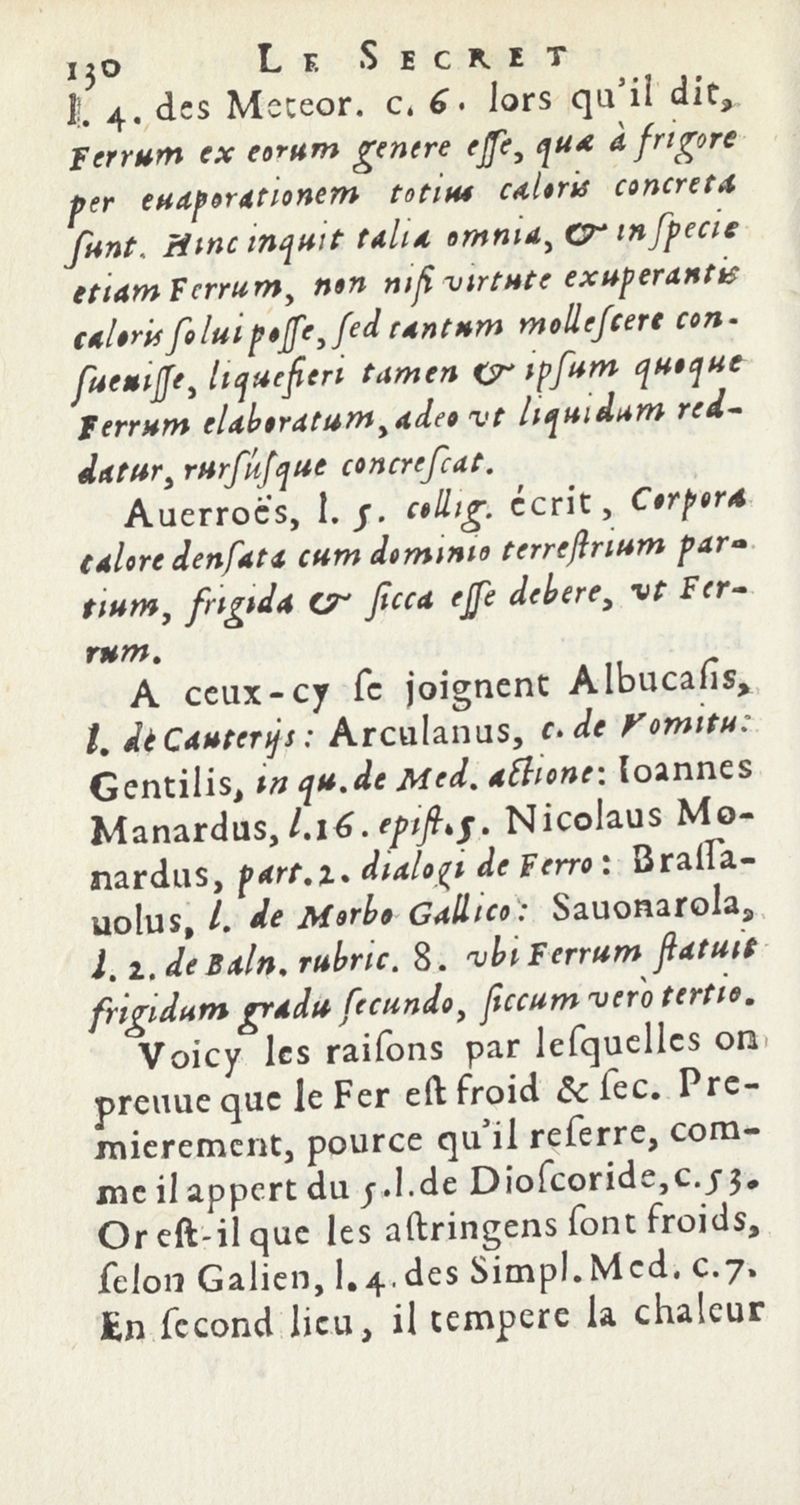 130 LE SECRET
l. 4. des Meteor. c. 6. lors qu'il dit,
Ferrum ex eorum genere eſſe, quæ à frigore
per euaporationem totius caloris concreta
ſunt. Hinc inquit talia omnia, & in ſpecie
etiam Ferrum, non niſi virtute exuperantis
caloris ſolui poſſe, ſed tantum molleſcere con-
ſueuiſſe, liquefieri tamen & ipſum quoque
Ferrum elaboratum, adeo vt liquidum red-
datur, rurſúſque concreſcat.
Auerroës, l. 5. collig. écrit, Corpora
calore denſata cum dominio terreſtrium par-
tium, frigida & ſicca eſſe debere, vt Fer-
rum.
A ceux-cy ſe joignent Albucaſis,
l. de Cauterijs: Arculanus, c. de Vomitu:
Gentilis, in qu. de Med. actione: Ioannes
Manardus, l. 16. epiſt. 5. Nicolaus Mo-
nardus, part. 2. dialogi de Ferro: Braſſa-
uolus, l. de Morbo Gallico: Sauonarola,
l. 2. de Baln. rubric. 8. vbi Ferrum ſtatuit
frigidum gradu ſecundo, ſiccum verò tertio.
Voicy les raiſons par leſquelles on
preuue que le Fer eſt froid & ſec. Pre-
mierement, pource qu'il reſerre, com-
me il appert du 5. l. de Dioſcoride, c. 53.
Or eſt-il que les aſtringens ſont froids,
ſelon Galien, l. 4. des Simpl. Med. c. 7.
En ſecond lieu, il tempere la chaleur